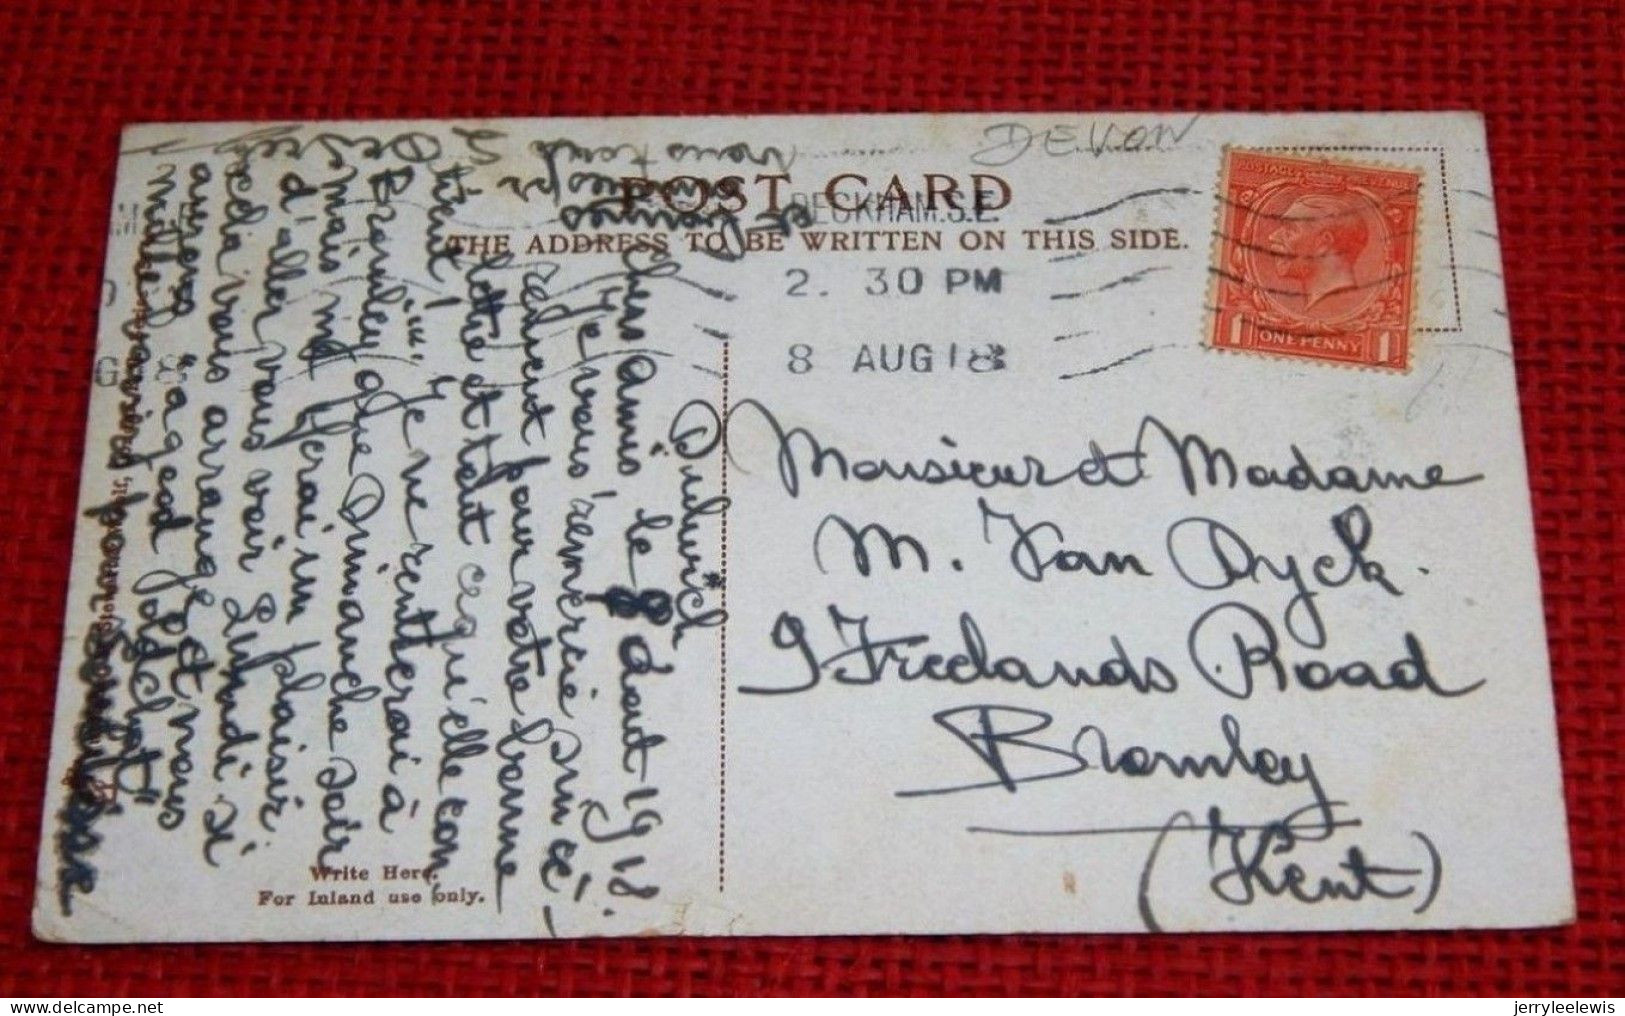 DEVON
POST CARD
THE ADDRESS TO BE WRITTEN ON THIS SIDE.
PECKHAM. S.E.
2. 30 PM
8 AUG 18
1 ONE PENNY 1
Monsieur et Madame
M. Van Dyck.
9 Freelands Road
Bromley
(Kent)
Dulwich
le 8 août 1918.
Chers amis,
Je vous remercie sincè-
rement pour votre bonne
lettre et tout ce qu'elle con-
tient! Je ne rentterai à
que Dimanche soir
mais me ferai un plaisir
d'aller vous voir Lundi si
cela vous arrange, et vous
Write Here.
For Inland use only.
jerryleelewis